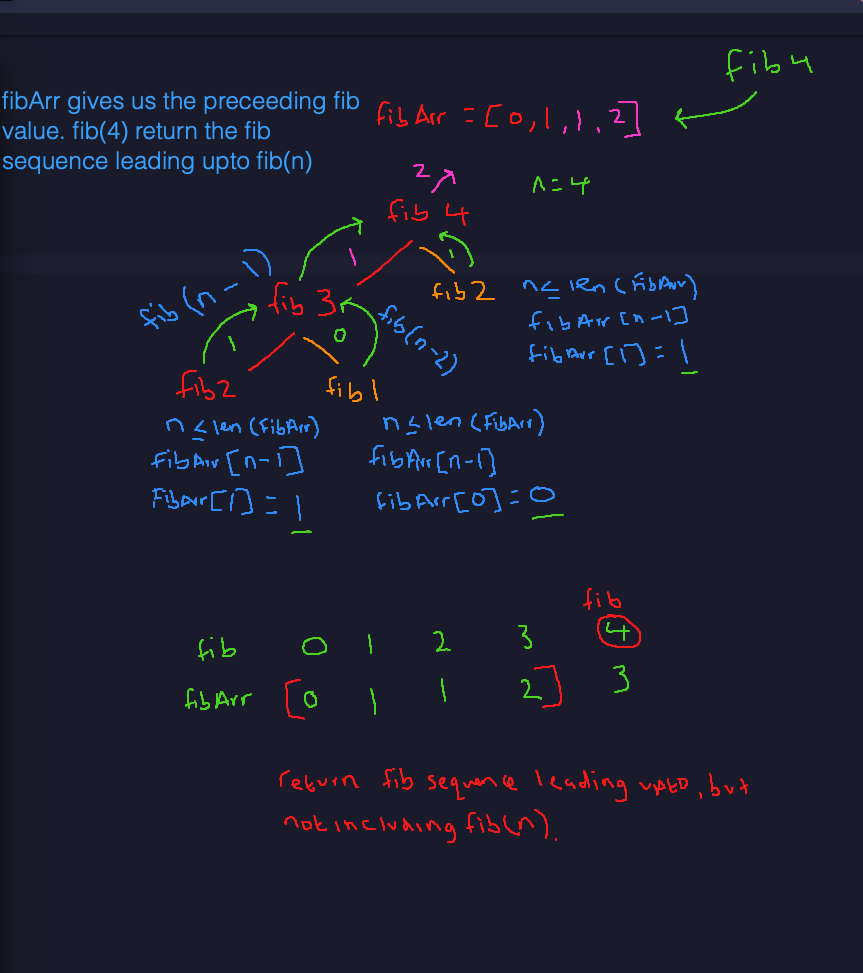 fib 4
fibArr gives us the preceeding fib
value. fib(4) return the fib
sequence leading upto fib(n)
fibArr = [0,1,1,2]
n=4
2
fib 4
1
1
fib(n-1)
fib 3
fib(n-2)
fib2
1
0
fib2
fib1
n≤len(FibArr)
fibArr[n-1]
fibArr[1]=1
n≤len(FibArr)
FibArr[n-1]
FibArr[1]=1
n≤len(FibArr)
fibArr[n-1]
fibArr[0]=0
fib
fib 0 1 2 3 4
fibArr [0 1 1 2] 3
return fib sequence leading upto, but
not including fib(n).